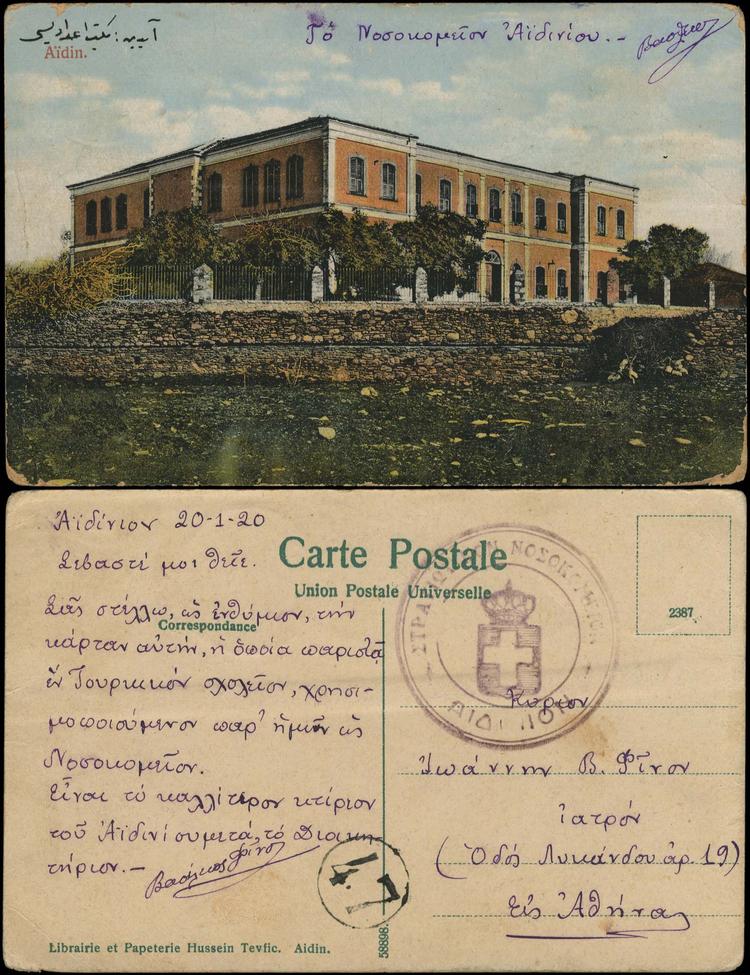 آیدین : مکتب اعدادیسی
Aïdin.
Τό Νοσοκομεῖον Ἀϊδινίου.-
Ἀϊδίνιον 20-1-20
Σεβαστέ μοι θεῖε.
Σᾶς στέλλω, ὡς ἐνθύμιον, τήν
κάρταν αὐτήν, ἡ ὁποία παριστᾷ
ἕν Τουρκικόν σχολεῖον, χρησι-
μοποιούμενον παρ' ἡμῶν ὡς
Νοσοκομεῖον.
Εἶναι τό καλλίτερον κτίριον
τοῦ Ἀϊδινίου μετά τό Διοικη-
τήριον.-
Carte Postale
Union Postale Universelle
Correspondance
2387
ΣΤΡΑΤΙΩΤΙΚΟΝ ΝΟΣΟΚΟΜΕΙΟΝ
ΑΙΔΙΝΙΟΝ
Κύριον
Ἰωάννην Β. Φῖνον
ἰατρόν
(Ὁδός Λυκάνδου ἀρ. 19)
Εἰς Ἀθήνας
47
58898.
Librairie et Papeterie Hussein Tevfic. Aidin.